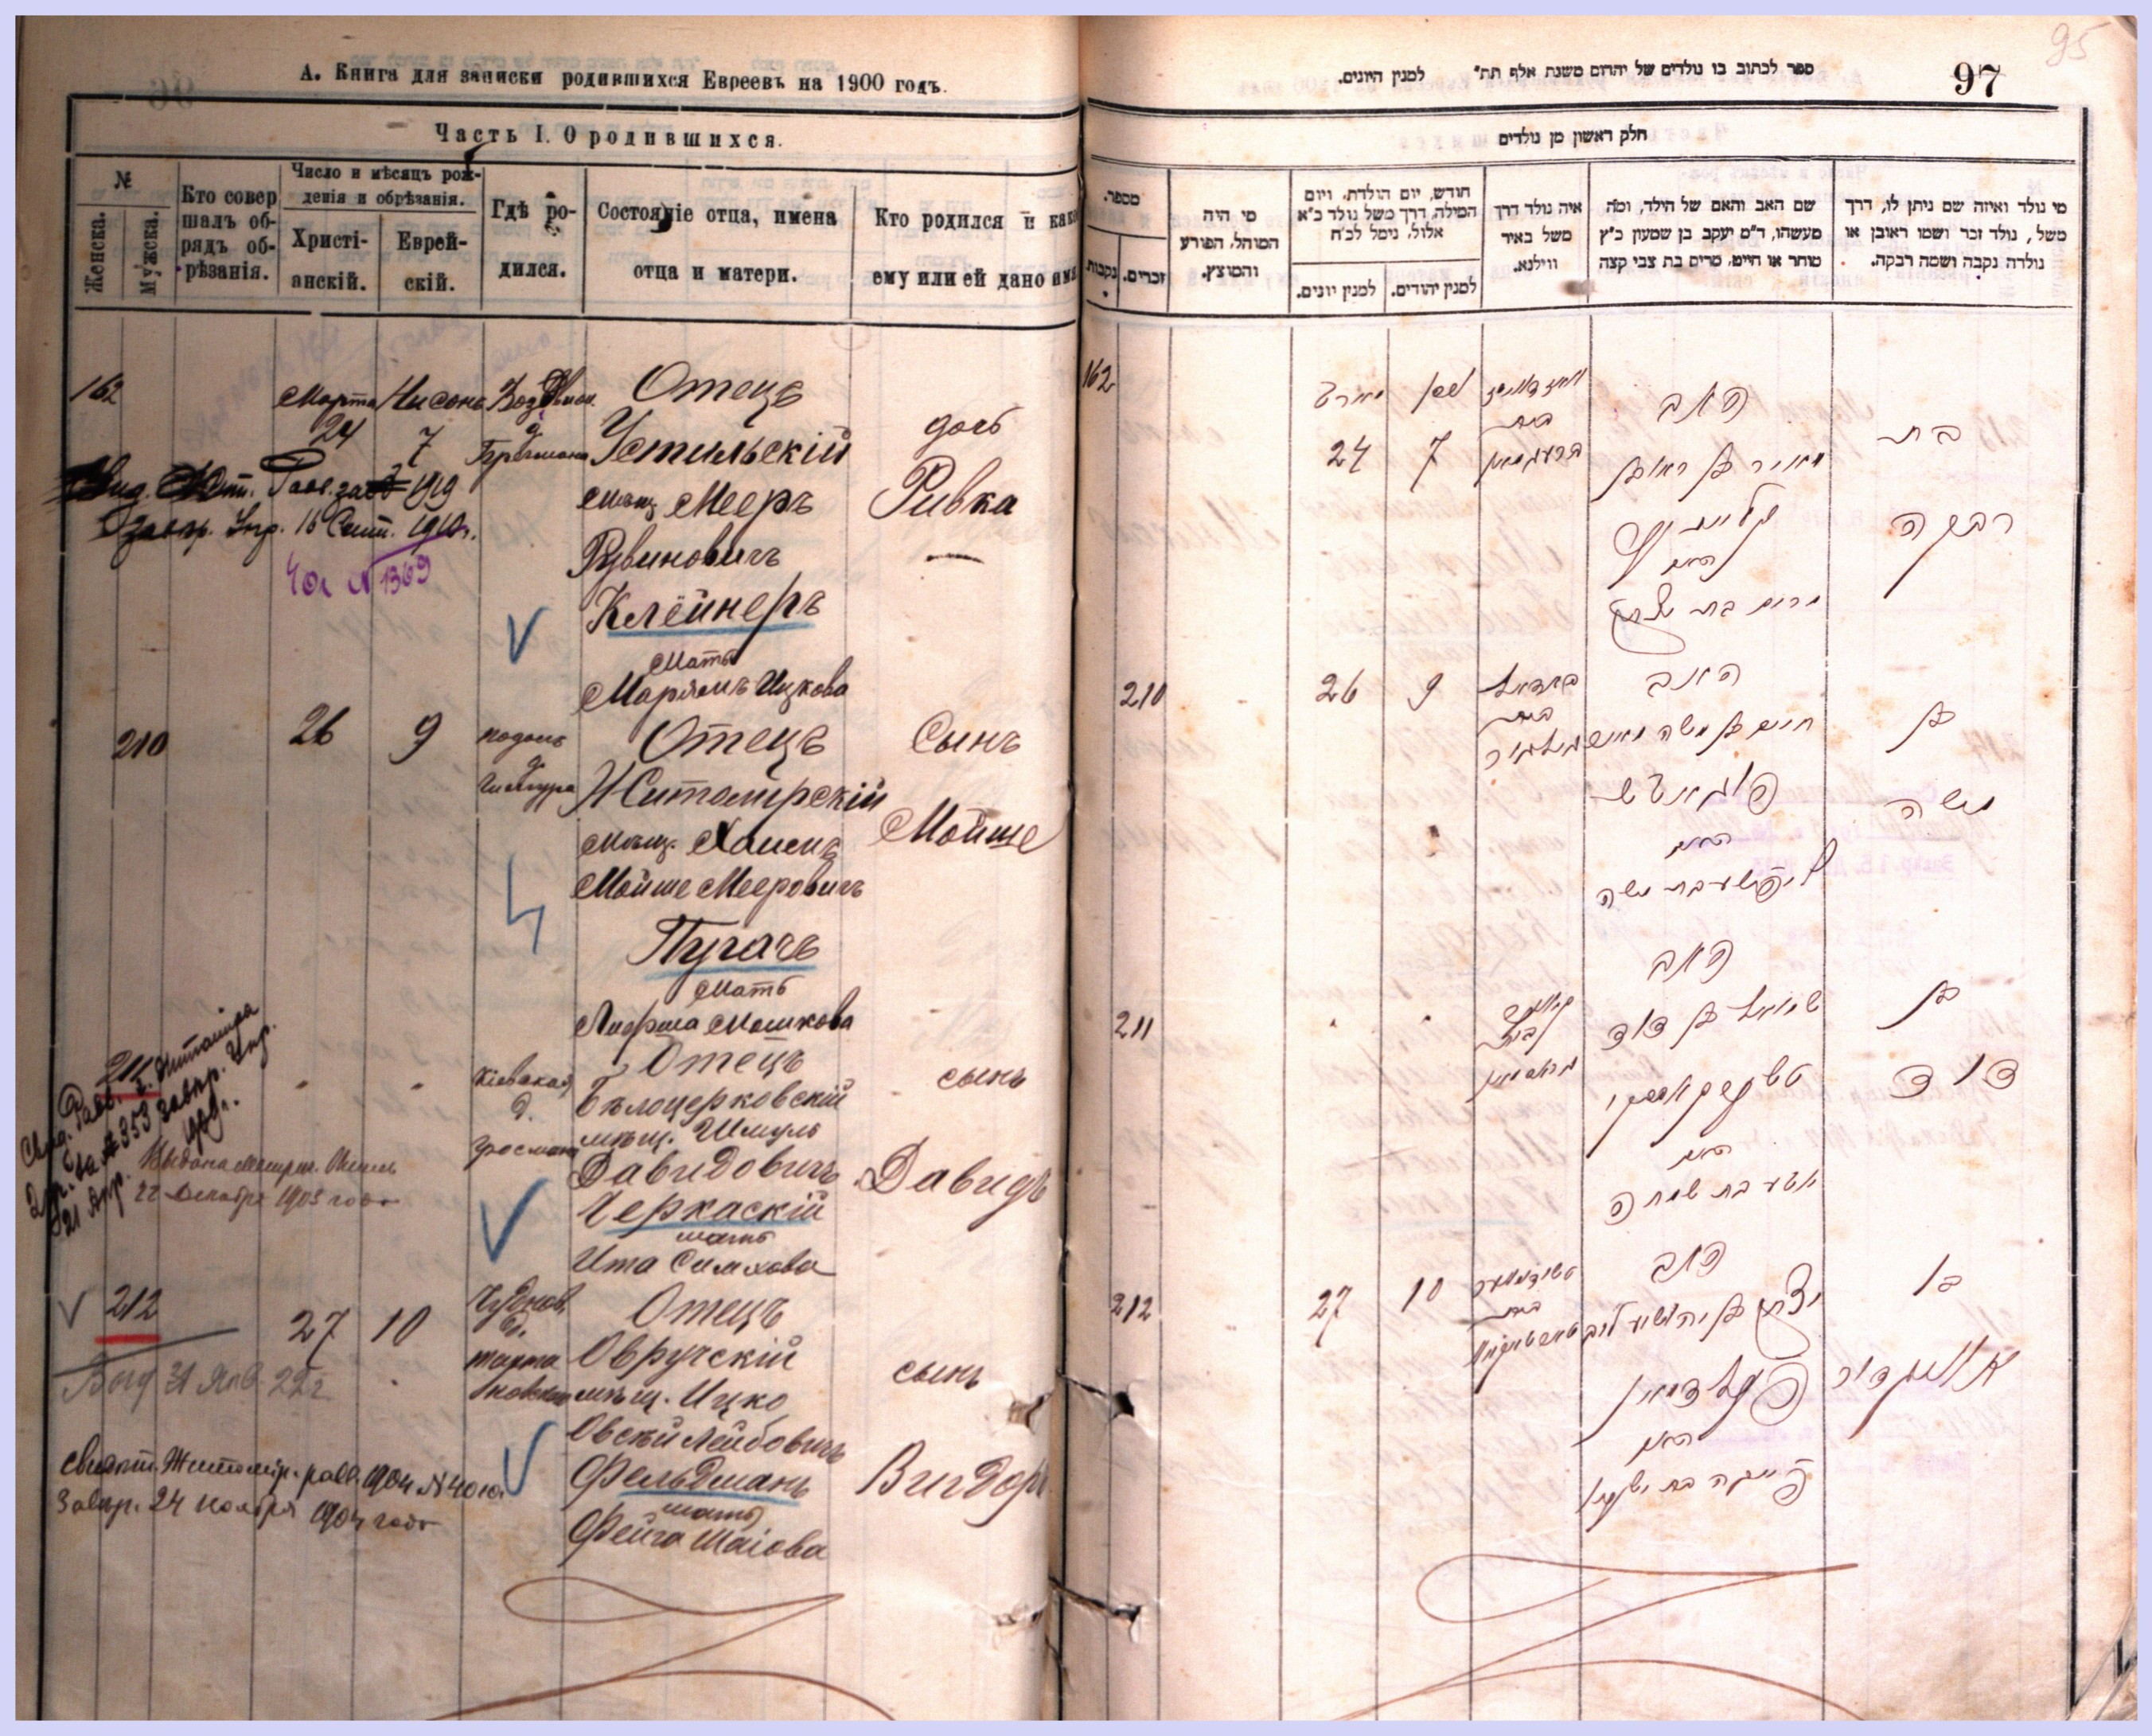 А. Книга для записки родившихся Евреевъ на 1900 годъ.
Часть I. О родившихся.
№
Женска.
Мужска.
Кто совер
шалъ об-
рядъ об-
рѣзанія.
Число и мѣсяцъ рож-
денія и обрѣзанія.
Христі-
анскій.
Еврей-
скій.
Гдѣ ро-
дился.
Состояніе отца, имена
отца и матери.
Кто родился и како
ему или ей дано имя
162
Марта
24
Нисона
7
Бергмана
Отецъ
Устильскій
мѣщ. Мееръ
Рувиновичъ
Клейнеръ
Мать
Марьямъ Ицкова
дочь
Ривка
—
1919
16 Сент. 1910г.
№ 1369
210
26
9
подоль
д.
Отецъ
Житомирскій
мѣщ. Хаимъ
Мойше Мееровичъ
Пугачъ
Мать
Лифша Мошкова
Сынъ
Мойше
211
Кіевской
д.
Гросмана
Отецъ
Бѣлоцерковскій
мѣщ. Шмуль
Давидовичъ
Черкаскій
мать
Ита Симхова
сынъ
Давидъ
Свид. Равв. г. Житоміра
№ 353 Завѣр. Упр.
21 Апр. 1909г.
22 Декабря 1903 года
212
27
10
Чуднов.
д.
Отецъ
Овручскій
мѣщ. Ицко
Овсѣй Лейбовичъ
Фельдманъ
мать
Фейга Шаіова
сынъ
Вигдоръ
31 Янв. 22г.
свидѣт. Житомір. равв. 1904 № 400.
Завѣр. 24 ноября 1904 года
95
97
ספר לכתוב בו נולדים של יהדום משנת אלף תת״ למנין היונים.
חלק ראשון מן נולדים
מספר.
נקבות
זכרים.
מי היה
המוהל, הפורע
והמוצץ.
חודש, יום הולדת, ויום
המילה, דרך משל נולד כ״א
אלול, נימל לכ״ח
למנין יונים.
למנין יהודים.
איה נולד דרך
משל באיר
ווילנא.
שם האב והאם של הילד, ומה
מעשהו, ד״מ יעקב בן שמעון כ״ץ
סוחר או חייט, מרים בת צבי קצה
מי נולד ואיזה שם ניתן לו, דרך
משל, נולד זכר ושמו ראובן או
נולדה נקבה ושמה רבקה.
162
מארט
24
ניסן
7
האב
מאיר בן ראובן
קליינער
האם
מרים בת יצחק
בת
רבקה
210
26
9
האב
חיים בן משה מאיר
פוגאטש
האם
ליפשע בת משה
בן
משה
211
האב
שמואל בן דוד
טשערקאסקי
האם
איטע בת שמחה
בן
דוד
212
27
10
האב
יצחק בן יהושע לייב
פעלדמאן
האם
פייגה בת ישעיהו
בן
אביגדור